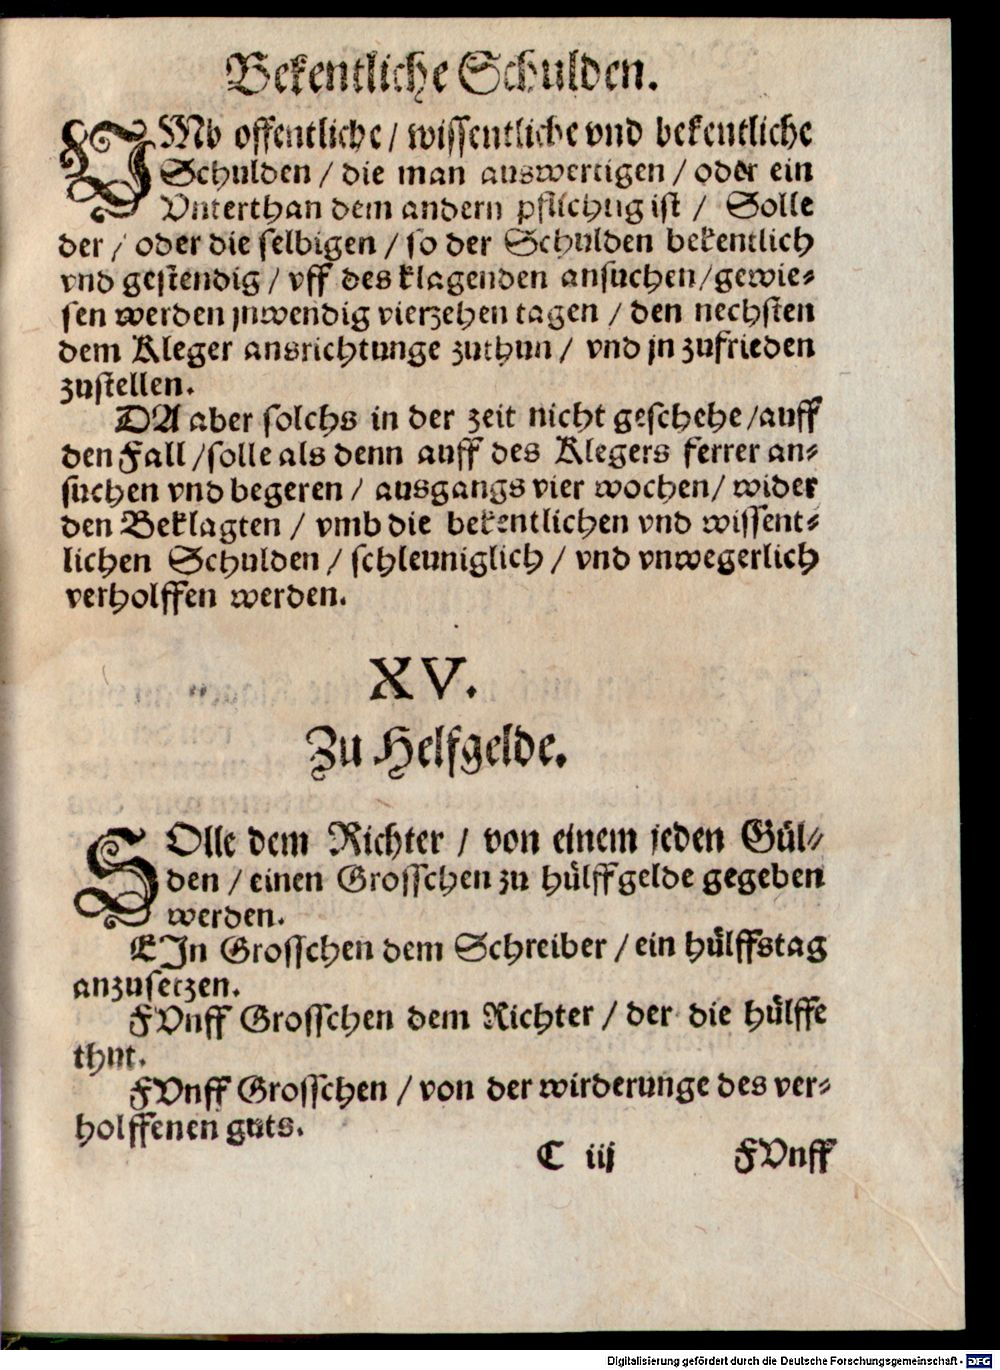 Bekentliche Schulden.
VMb offentliche / wissentliche vnd bekentliche
Schulden / die man auswertigen / oder ein
Vnterthan dem andern pflichtig ist / Solle
der / oder die selbigen / so der Schulden bekentlich
vnd gestendig / vff des klagenden ansuchen / gewie-
sen werden jnwendig vierzehen tagen / den nechsten
dem Kleger ausrichtunge zuthun / vnd jn zufrieden
zustellen.
DA aber solchs in der zeit nicht geschehe / auff
den Fall / solle als denn auff des Klegers ferrer an-
suchen vnd begeren / ausgangs vier wochen / wider
den Beklagten / vmb die bekentlichen vnd wissent-
lichen Schulden / schleuniglich / vnd vnwegerlich
verholffen werden.
XV.
Zu Helfgelde.
SOlle dem Richter / von einem jeden Gül-
den / einen Grosschen zu hülffgelde gegeben
werden.
EJn Grosschen dem Schreiber / ein hülffstag
anzusetzen.
FVnff Grosschen dem Richter / der die hülffe
thut.
FVnff Grosschen / von der wirderunge des ver-
holffenen guts.
C iij FVnff
Digitalisierung gefördert durch die Deutsche Forschungsgemeinschaft - DFG